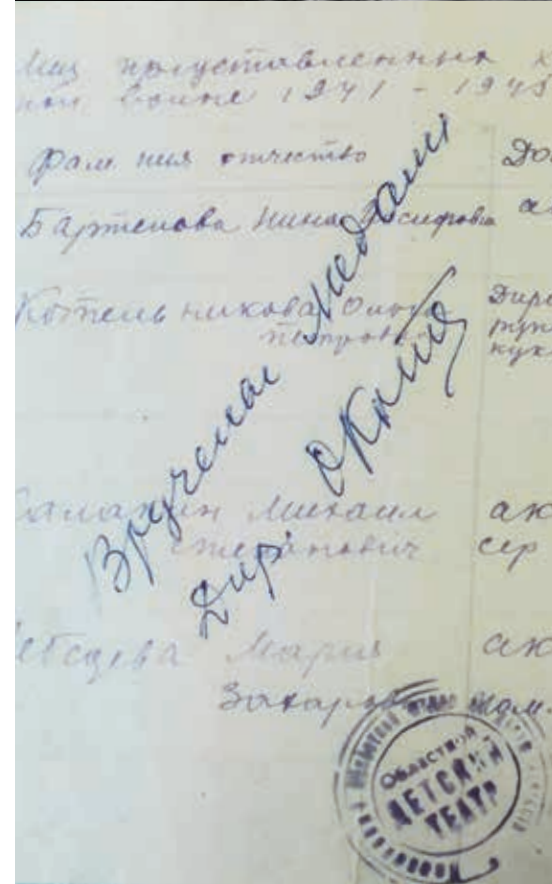 лиц представленных к
ной войне 1941 - 1945
Фамилия отчество До
Бартенова Нина Осиповна а
Котельникова Ольга Дире
Петровна
Вручены медали
Дир.
Саланин Михаил ак
Степанович сер
Лебедева Мария ак
Захаровна
ОБЛАСТНОЙ
ДЕТСКИЙ
ТЕАТР